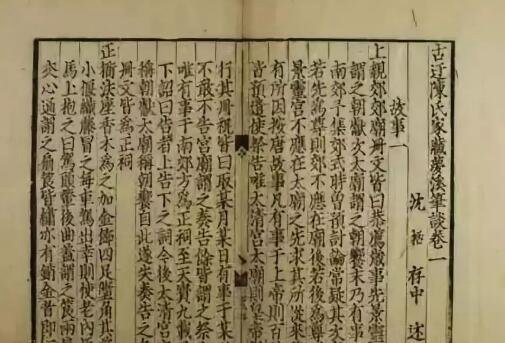 古迂陳氏家藏夢溪筆談卷一
沈括存中述
故事一
上親郊郊廟冊文皆曰恭薦歲事先景靈
謂之朝獻次太廟謂之朝饗末乃有事
南郊予集郊式時曾預討論常疑其次
若先為尊則郊不應在廟後若後為尊
景靈宮不應在太廟之先求其所從來
有所因按唐故事凡有事于上帝則百
皆預遣使祭告唯太清宮太廟則皇帝
行其冊祝皆曰取某月某日有事于某
不敢不告宮廟謂之奏告餘皆謂之祭
唯有事于南郊方為正祠至天寶九載
下詔曰告者上告下之詞今後太清宮
稱朝獻太廟稱朝饗自此遂失奏告之
冊文皆為正祠
正衙法座香木為之加金飾四足墮角其
小偃織藤冒之每車駕出幸則使老內
馬上抱之曰駕頭輦後曲蓋謂之筤兩
夾心通謂之扇筤皆繡亦有銷金者即